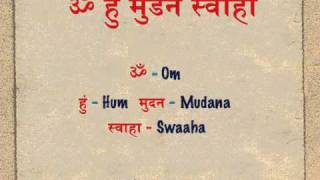 ॐ हुं मुडन स्वाहा
ॐ - Om
हुं - Hum मुदन - Mudana
स्वाहा - Swaaha